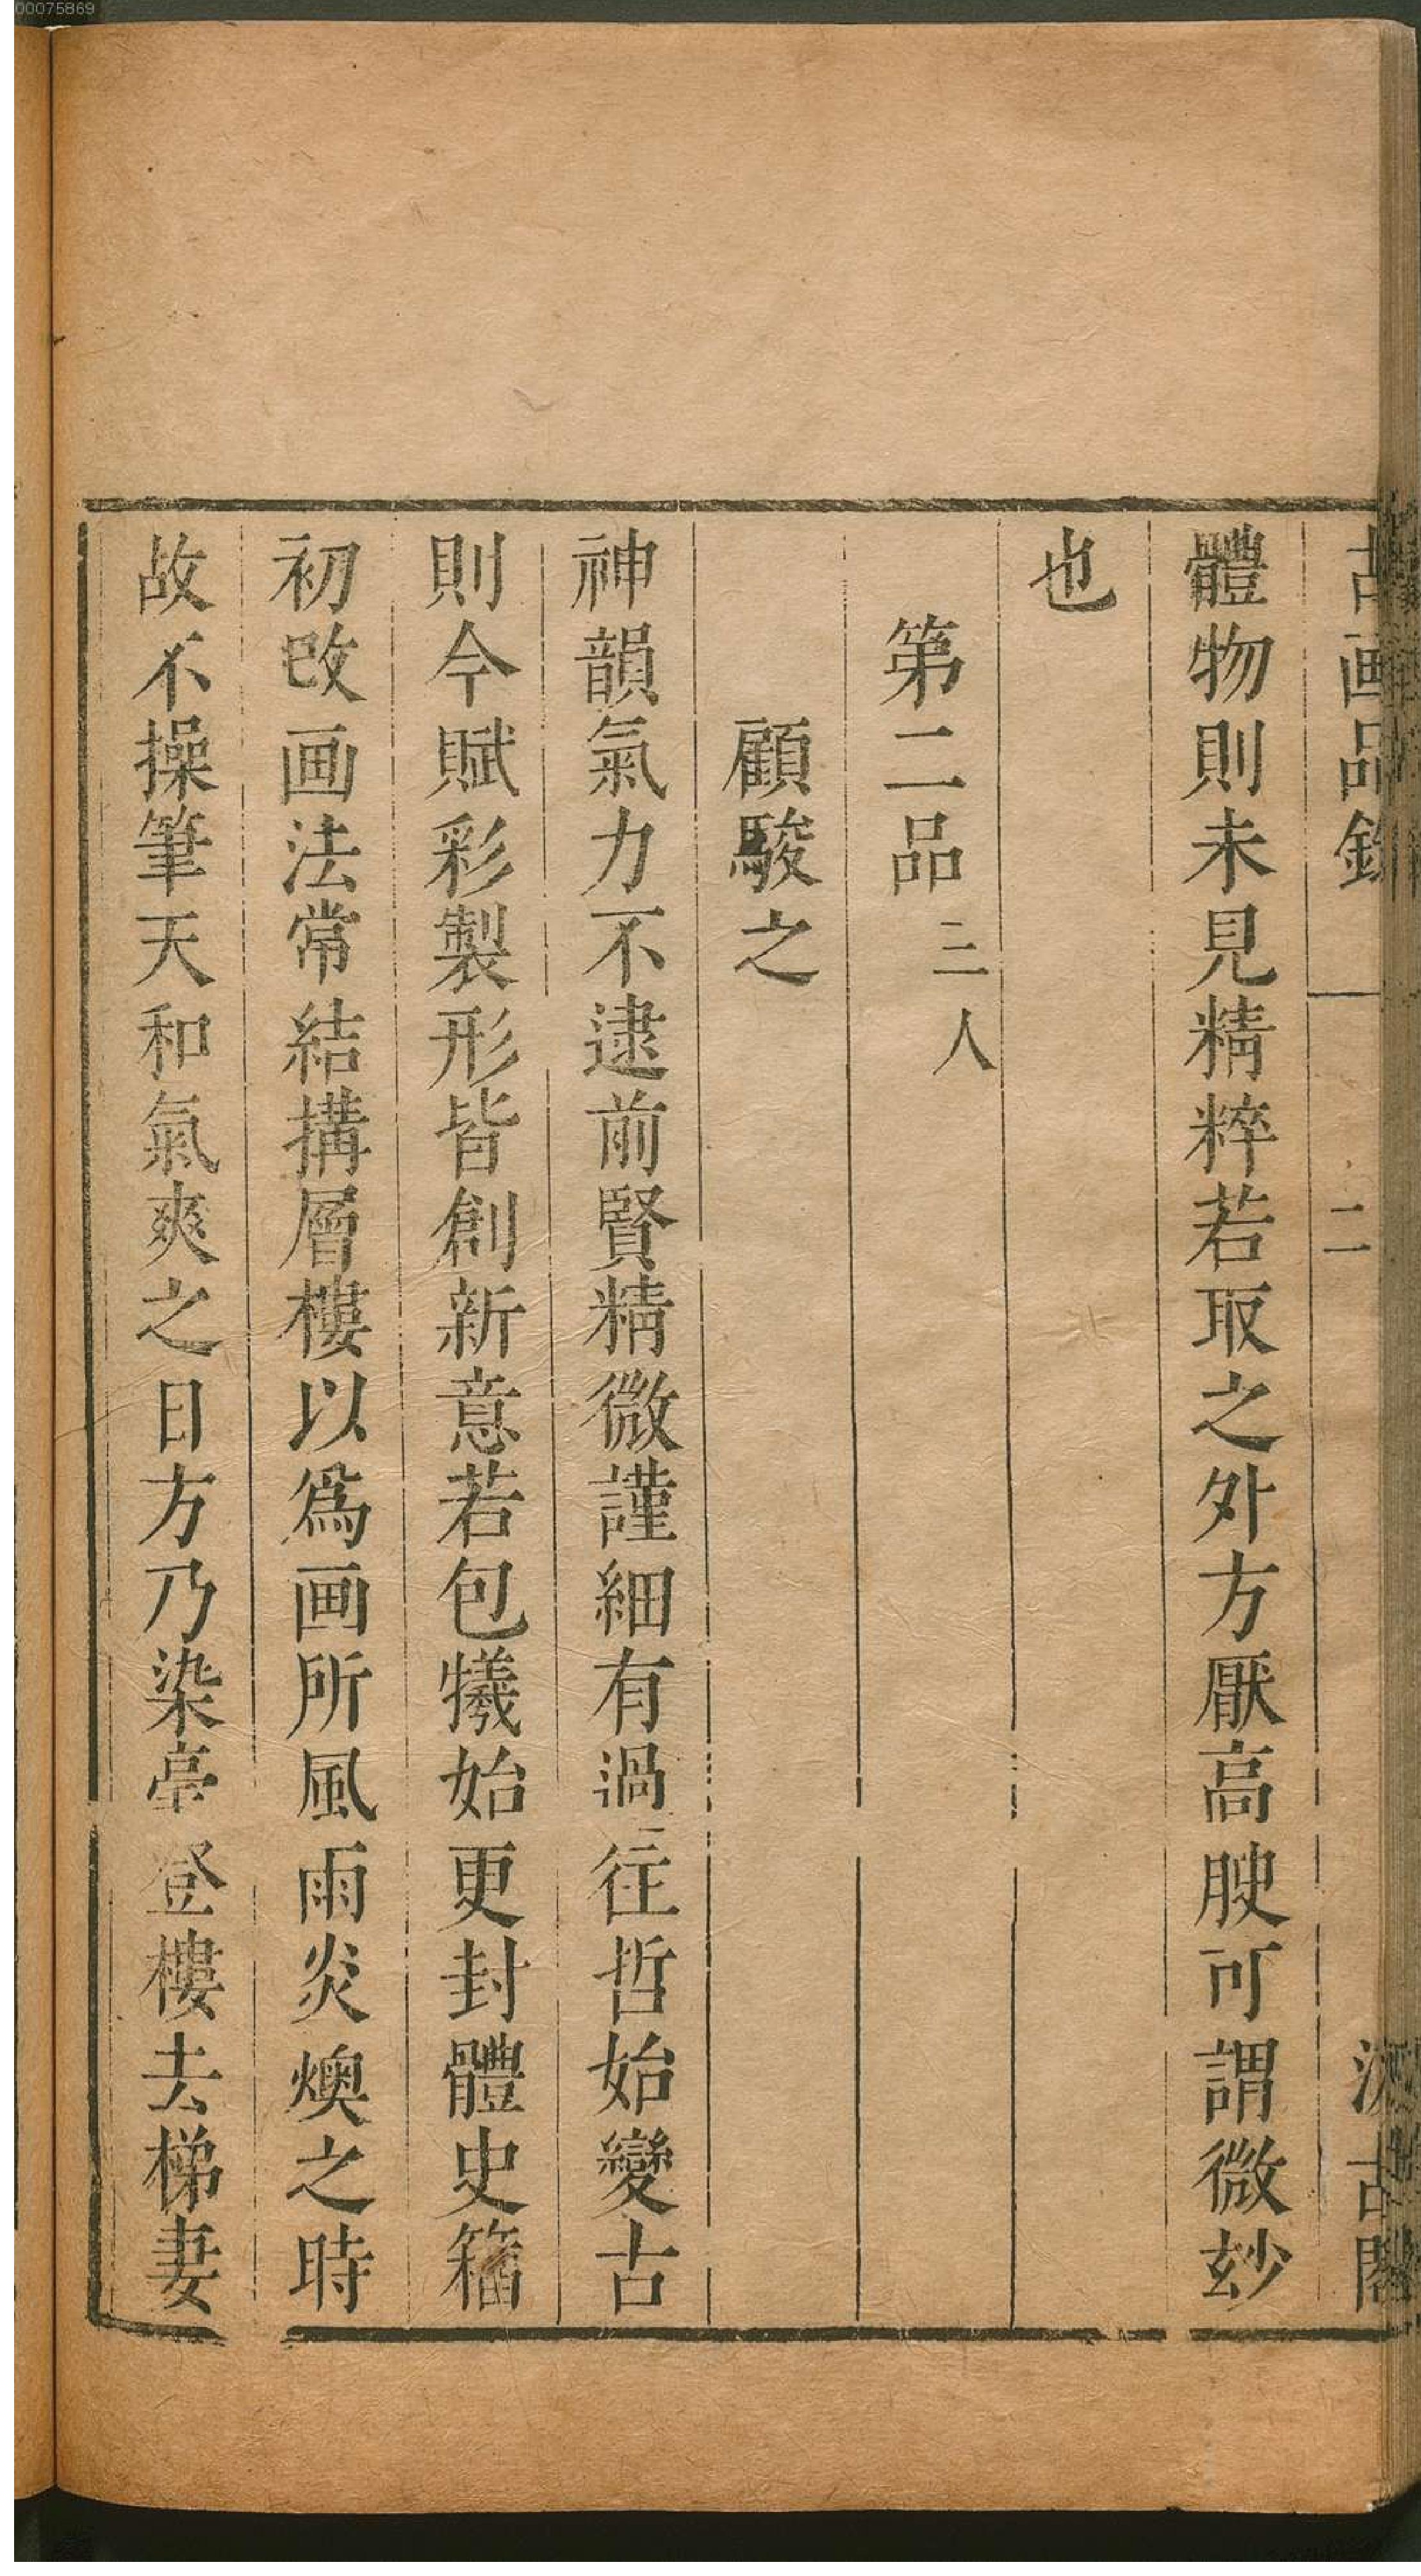 00075869
古画品錄 二 汲古閣
體物則未見精粹若取之外方厭高腴可謂微玅
也
第二品三人
顧駿之
神韻氣力不逮前賢精微謹細有過往哲始變古
則今賦彩製形皆創新意若包犧始更封體史籀
初改画法常結搆層樓以爲画所風雨炎燠之時
故不操筆天和氣爽之日方乃染亳登樓去梯妻